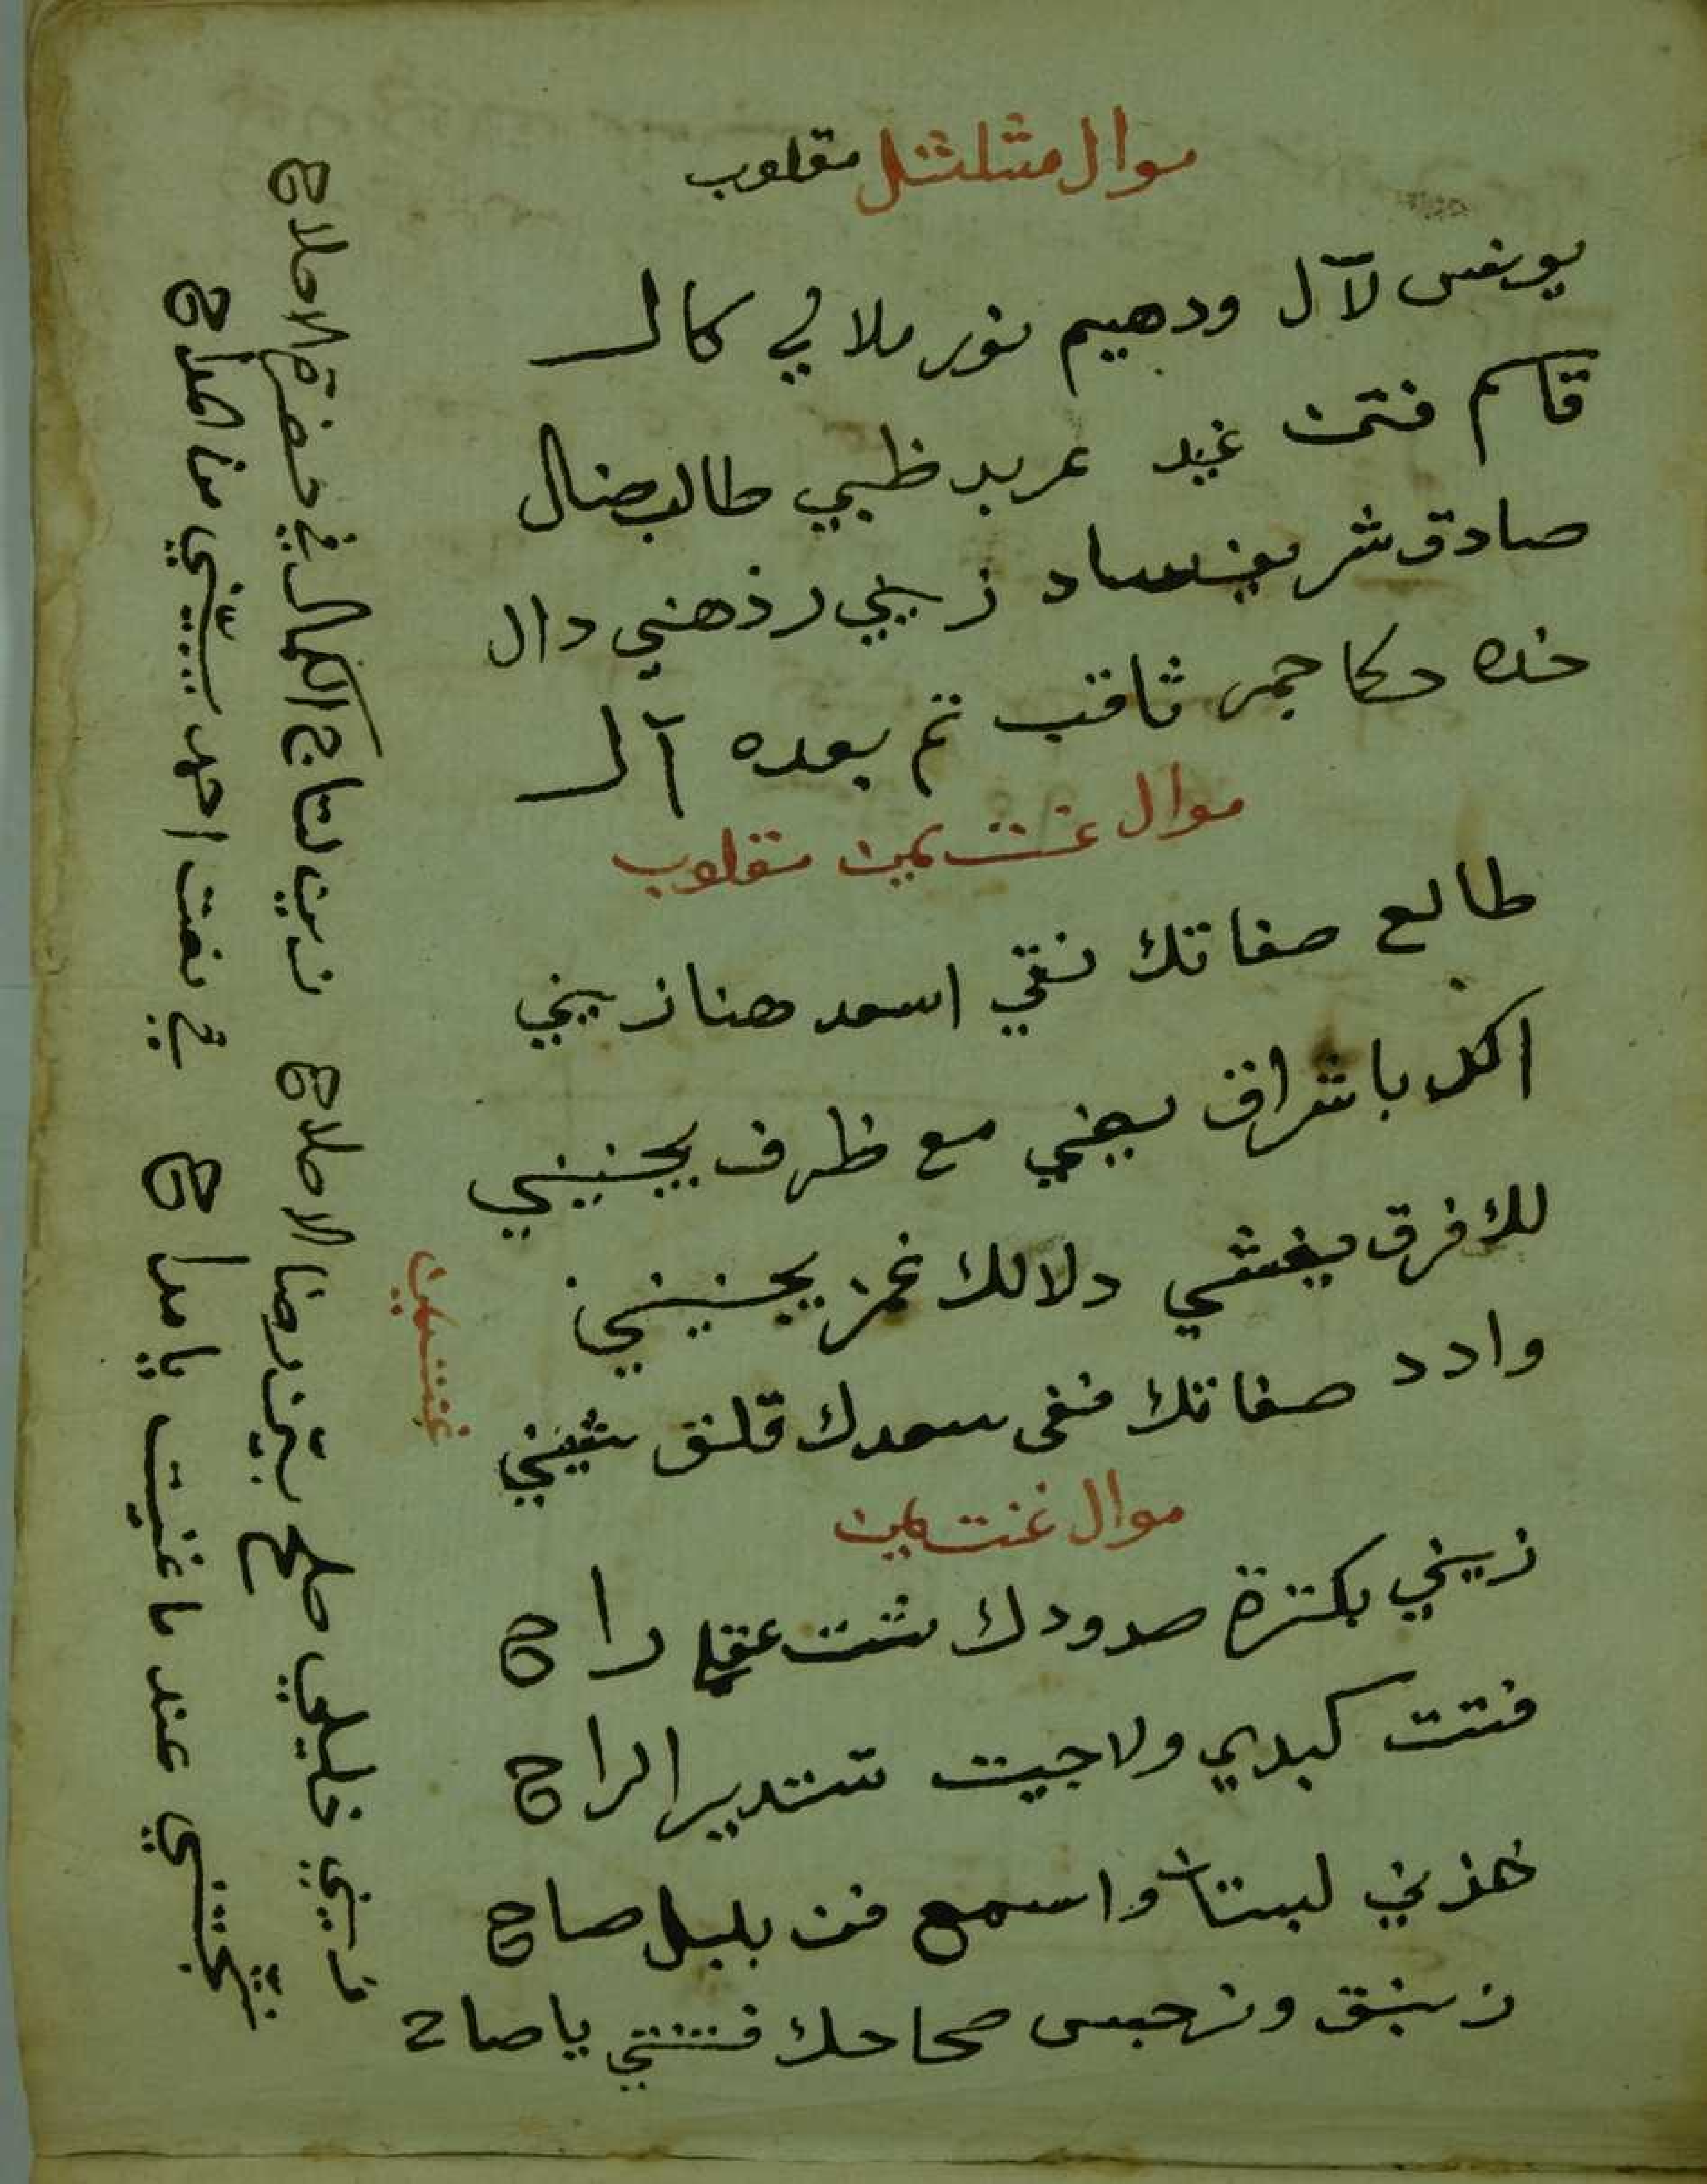 موال مثلثل مقلوب
يونس لآل ودهيم نور ملا لي كال
قاسم فتن غيد عربد ظبي طالب ضال
صادق شريف ساد زيني ر ذهني دال
خده حكا جمر ثاقب تم بعده آل
موال غنتمين مقلوب
طالع صفاتك نقي اسعد هنا زيني
اكل باشراق يجني مع ظرف يجنيني
لك فرق يغشي دلالك غمز يجنيني
وادد صفاتك فنى سعدك قلنق شيني
موال غنتمين
زيني بكترة صدودك شت عقل راح
فتت كبدي ولا جيت تستدير الراح
خذني لبستان واسمع فن بلبل صاح
زنبق ونرجس صحاحك فتنتي يا صاح
غنتمين
زيني خليلي صلح رضا الاصلاح زين لتاج الكمال في حضرة الاصلاح
عند ما غنيت يا مداح في نعت احمد من املاح